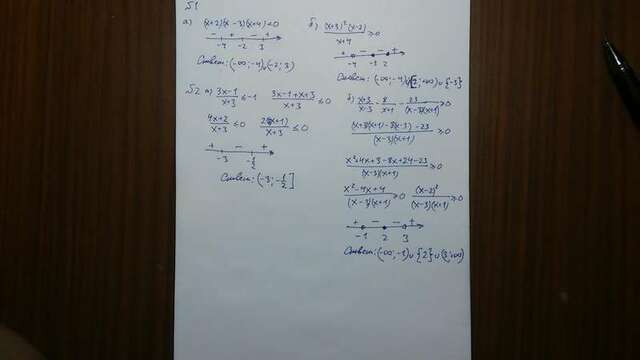 №1
а) (x+2)(x-3)(x+4)<0
- + - +
-4 -2 3
Ответ: (-∞; -4)∪(-2; 3)
б) (x+3)²(x-2)/(x+4) ≥0
+ - - +
-4 -3 2
Ответ: (-∞; -4)∪[2; +∞)∪{-3}
№2 а) (3x-1)/(x+3) ≤-1 (3x-1+x+3)/(x+3) ≤0
(4x+2)/(x+3) ≤0 2(2x+1)/(x+3) ≤0
+ - +
-3 -1/2
Ответ: (-3; -1/2]
б) (x+3)/(x-3) - 8/(x+1) - 23/((x-3)(x+1)) ≥0
((x+3)(x+1)-8(x-3)-23)/((x-3)(x+1)) ≥0
(x²+4x+3-8x+24-23)/((x-3)(x+1))
(x²-4x+4)/((x-3)(x+1)) ≥0 (x-2)²/((x-3)(x+1)) ≥0
+ - - +
-1 2 3
Ответ: (-∞; -1)∪{2}∪(3; +∞)